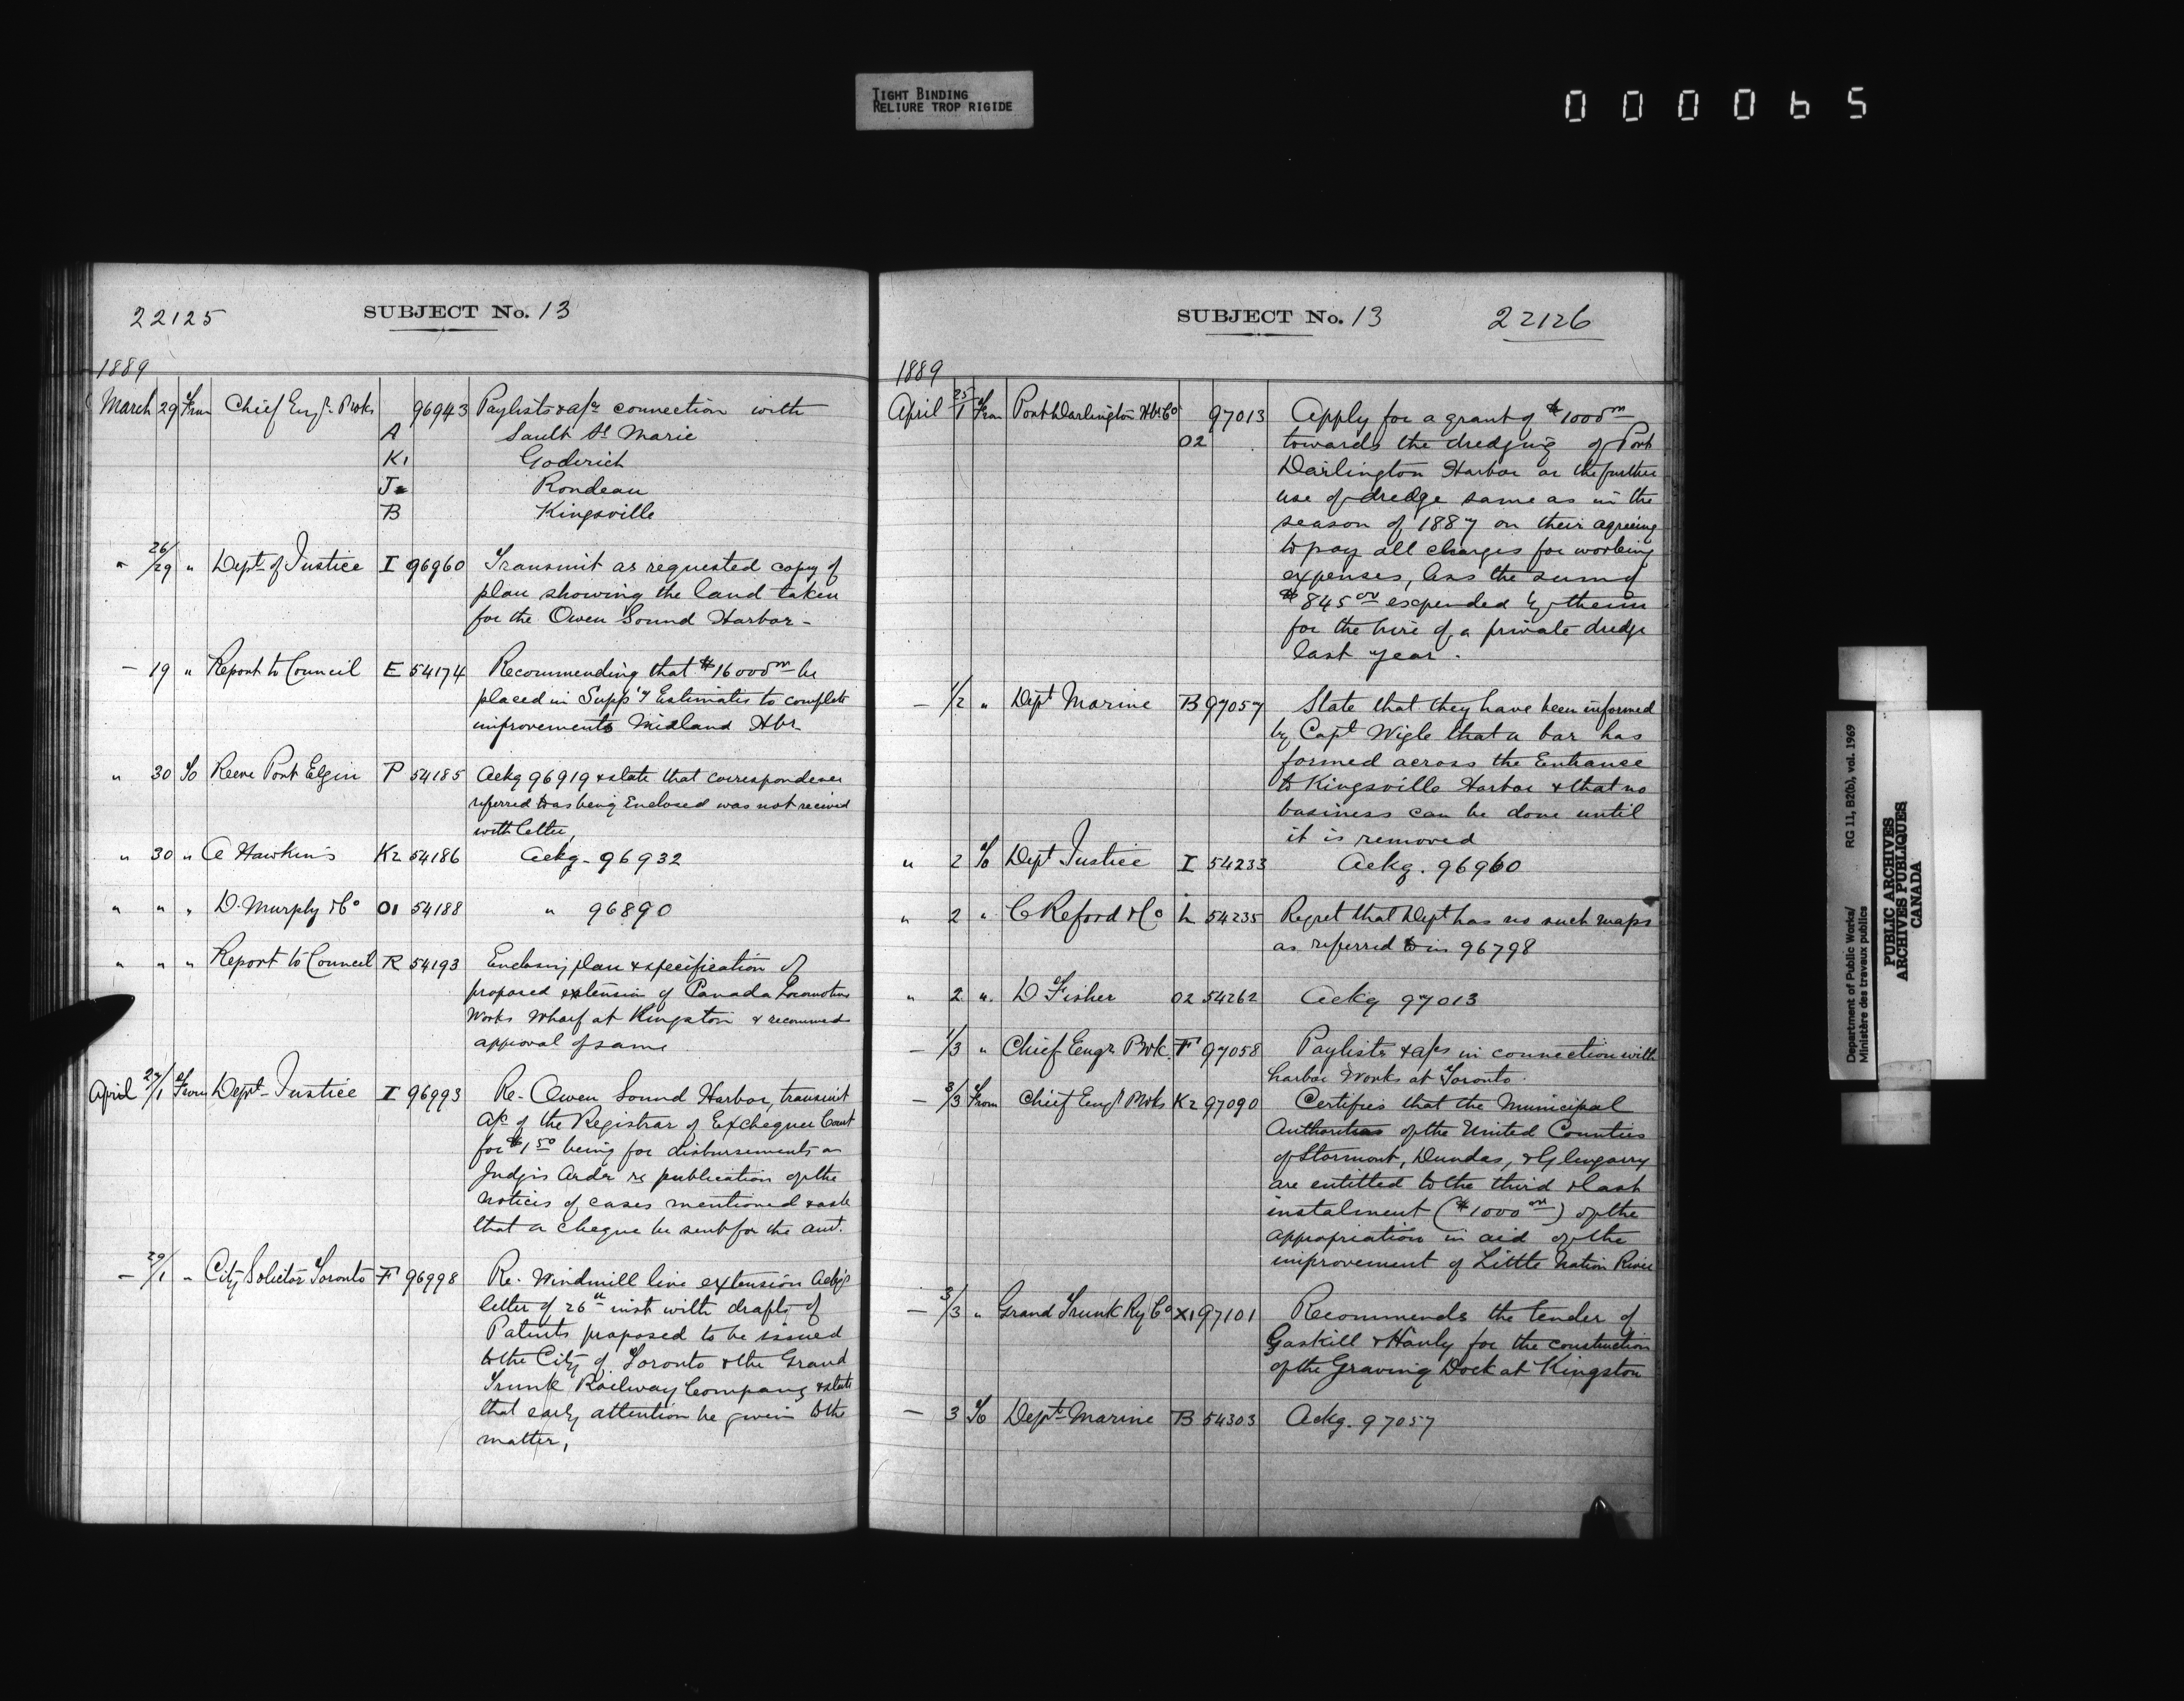 TIGHT BINDING
RELIURE TROP RIGIDE
000065
22125
SUBJECT No. 13
1889
March 29 From Chief Engr. P Wks 96943 Paylists & a/cs connection with
A Sault St Marie
K1 Goderich
J Rondeau
B Kingsville
" 26/29 " Dept of Justice I 96960 Transmit as requested copy of
plan showing the land taken
for the Owen Sound Harbor -
— 19 " Report to Council E 54174 Recommending that $16000 00 be
placed in Supp'y Estimates to complete
improvements Midland Hbr
" 30 To Reeve Port Elgin P 54185 Ackg 96919 & state that correspondence
referred to as being Enclosed was not received
with letter,
" 30 " A Hawkins K2 54186 Ackg - 96932
" " " D. Murphy & Co O1 54188 " 96890
" " " Report to Council R 54193 Enclosing plan & specification of
proposed extension of Canada Locomotive
Works Wharf at Kingston & recommends
approval of same
April 27/1 From Dept Justice I 96993 Re - Owen Sound Harbor, transmit
a/c of the Registrar of Exchequer Court
for $1 50 being for disbursements on
Judges Order re publication of the
notices of cases mentioned & ask
that a cheque be sent for the amt.
— 29/1 " City Solicitor Toronto F 96998 Re - Windmill line extension Ackgs
letter of 26th inst with drafts of
Patents proposed to be issued
to the City of Toronto & the Grand
Trunk Railway Company & state
that early attention be given to the
matter,
SUBJECT No. 13
22126
1889
April 25/1 From Port Darlington Hbr Co 97013 Apply for a grant of $1000 00
O2 towards the dredging of Port
Darlington Harbor or the further
use of dredge same as in the
season of 1887 on their agreeing
to pay all charges for working
expenses, less the sum of
$845 00 expended by them
for the hire of a private dredge
last year.
— 1/2 " Dept Marine B 97057 State that they have been informed
by Capt Wigle that a bar has
formed across the Entrance
to Kingsville Harbor & that no
business can be done until
it is removed
" 2 To Dept Justice I 54233 Ackg. 96960
" 2 " C Reford & Co L 54235 Regret that Dept has no such maps
as referred to in 96798
" 2 " D Fisher O2 54262 Ackg 97013
— 1/3 " Chief Engr P Wk. F 97058 Paylists & a/cs in connection with
harbor Works at Toronto.
— 3/3 From Chief Engr P Wks K2 97090 Certifies that the Municipal
Authorities of the United Counties
of Stormont, Dundas, & Glengarry
are entitled to the third & last
instalment ($1000 00) of the
appropriation in aid of the
improvement of Little Nation River
— 3/3 " Grand Trunk Ry Co X1 97101 Recommends the tender of
Gaskill & Hanly for the construction
of the Graving Dock at Kingston
— 3 To Dept Marine B 54303 Ackg. 97057
Department of Public Works/ RG 11, B2(b), vol. 1969
Ministère des travaux publics
PUBLIC ARCHIVES
ARCHIVES PUBLIQUES
CANADA